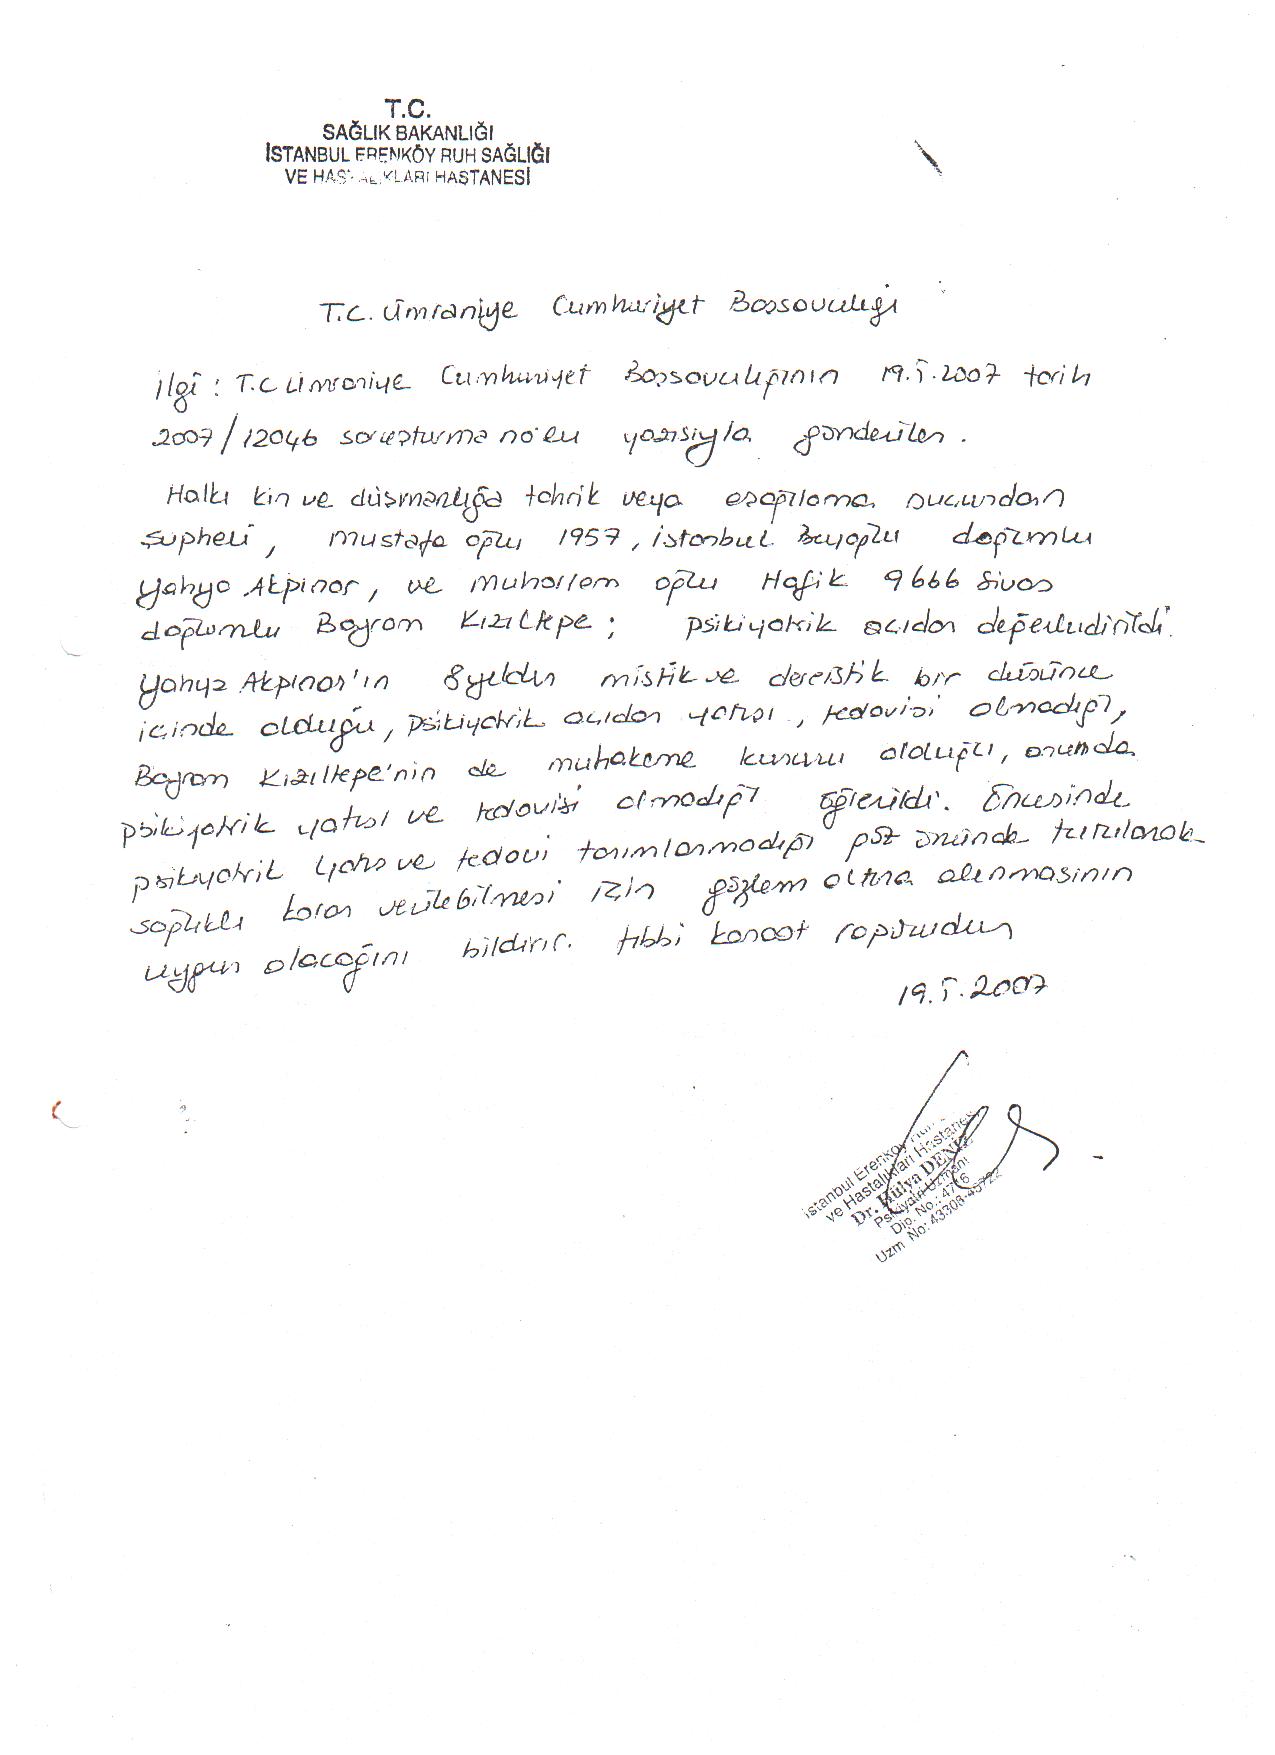 T.C.
SAĞLIK BAKANLIĞI
İSTANBUL ERENKÖY RUH SAĞLIĞI
VE HASTALIKLARI HASTANESİ
T.C. Ümraniye Cumhuriyet Bassavcılığı
ilgi : T.C Ümraniye Cumhuriyet Bassavcılığının 19.5.2007 tarih
2007/12046 soruşturma no'lu yazısıyla gönderilen.
Halkı kin ve düşmanlığa tahrik veya aşağılama suçundan
şüpheli, mustafa oğlu 1957, istanbul Beyoğlu doğumlu
Yahya Akpınar, ve Muharrem oğlu Hafik Sivas
doğumlu Bayram Kızıltepe; psikiyatrik açıdan değerlendirildi.
Yahya Akpınar'ın 8 yıldır mistik ve dereistik bir düşünce
içinde olduğu, psikiyatrik açıdan yatışı, tedavisi olmadığı,
Bayram Kızıltepe'nin de muhakeme kusuru olduğu, onunda
psikiyatrik yatışı ve tedavisi olmadığı öğrenildi. Öncesinde
psikiyatrik yatış ve tedavi tanımlanmadığı göz önünde tutularak
sağlıklı karar verilebilmesi için gözlem altına alınmasının
uygun olacağını bildirir. tıbbi kanaat raporudur
19.5.2007
İstanbul Erenköy Ruh
ve Hastalıkları Hastanesi
Dr. Hülya DENİZ
Psikiyatri Uzmanı
Dip. No.: 4716
Uzm No: 43308-45722